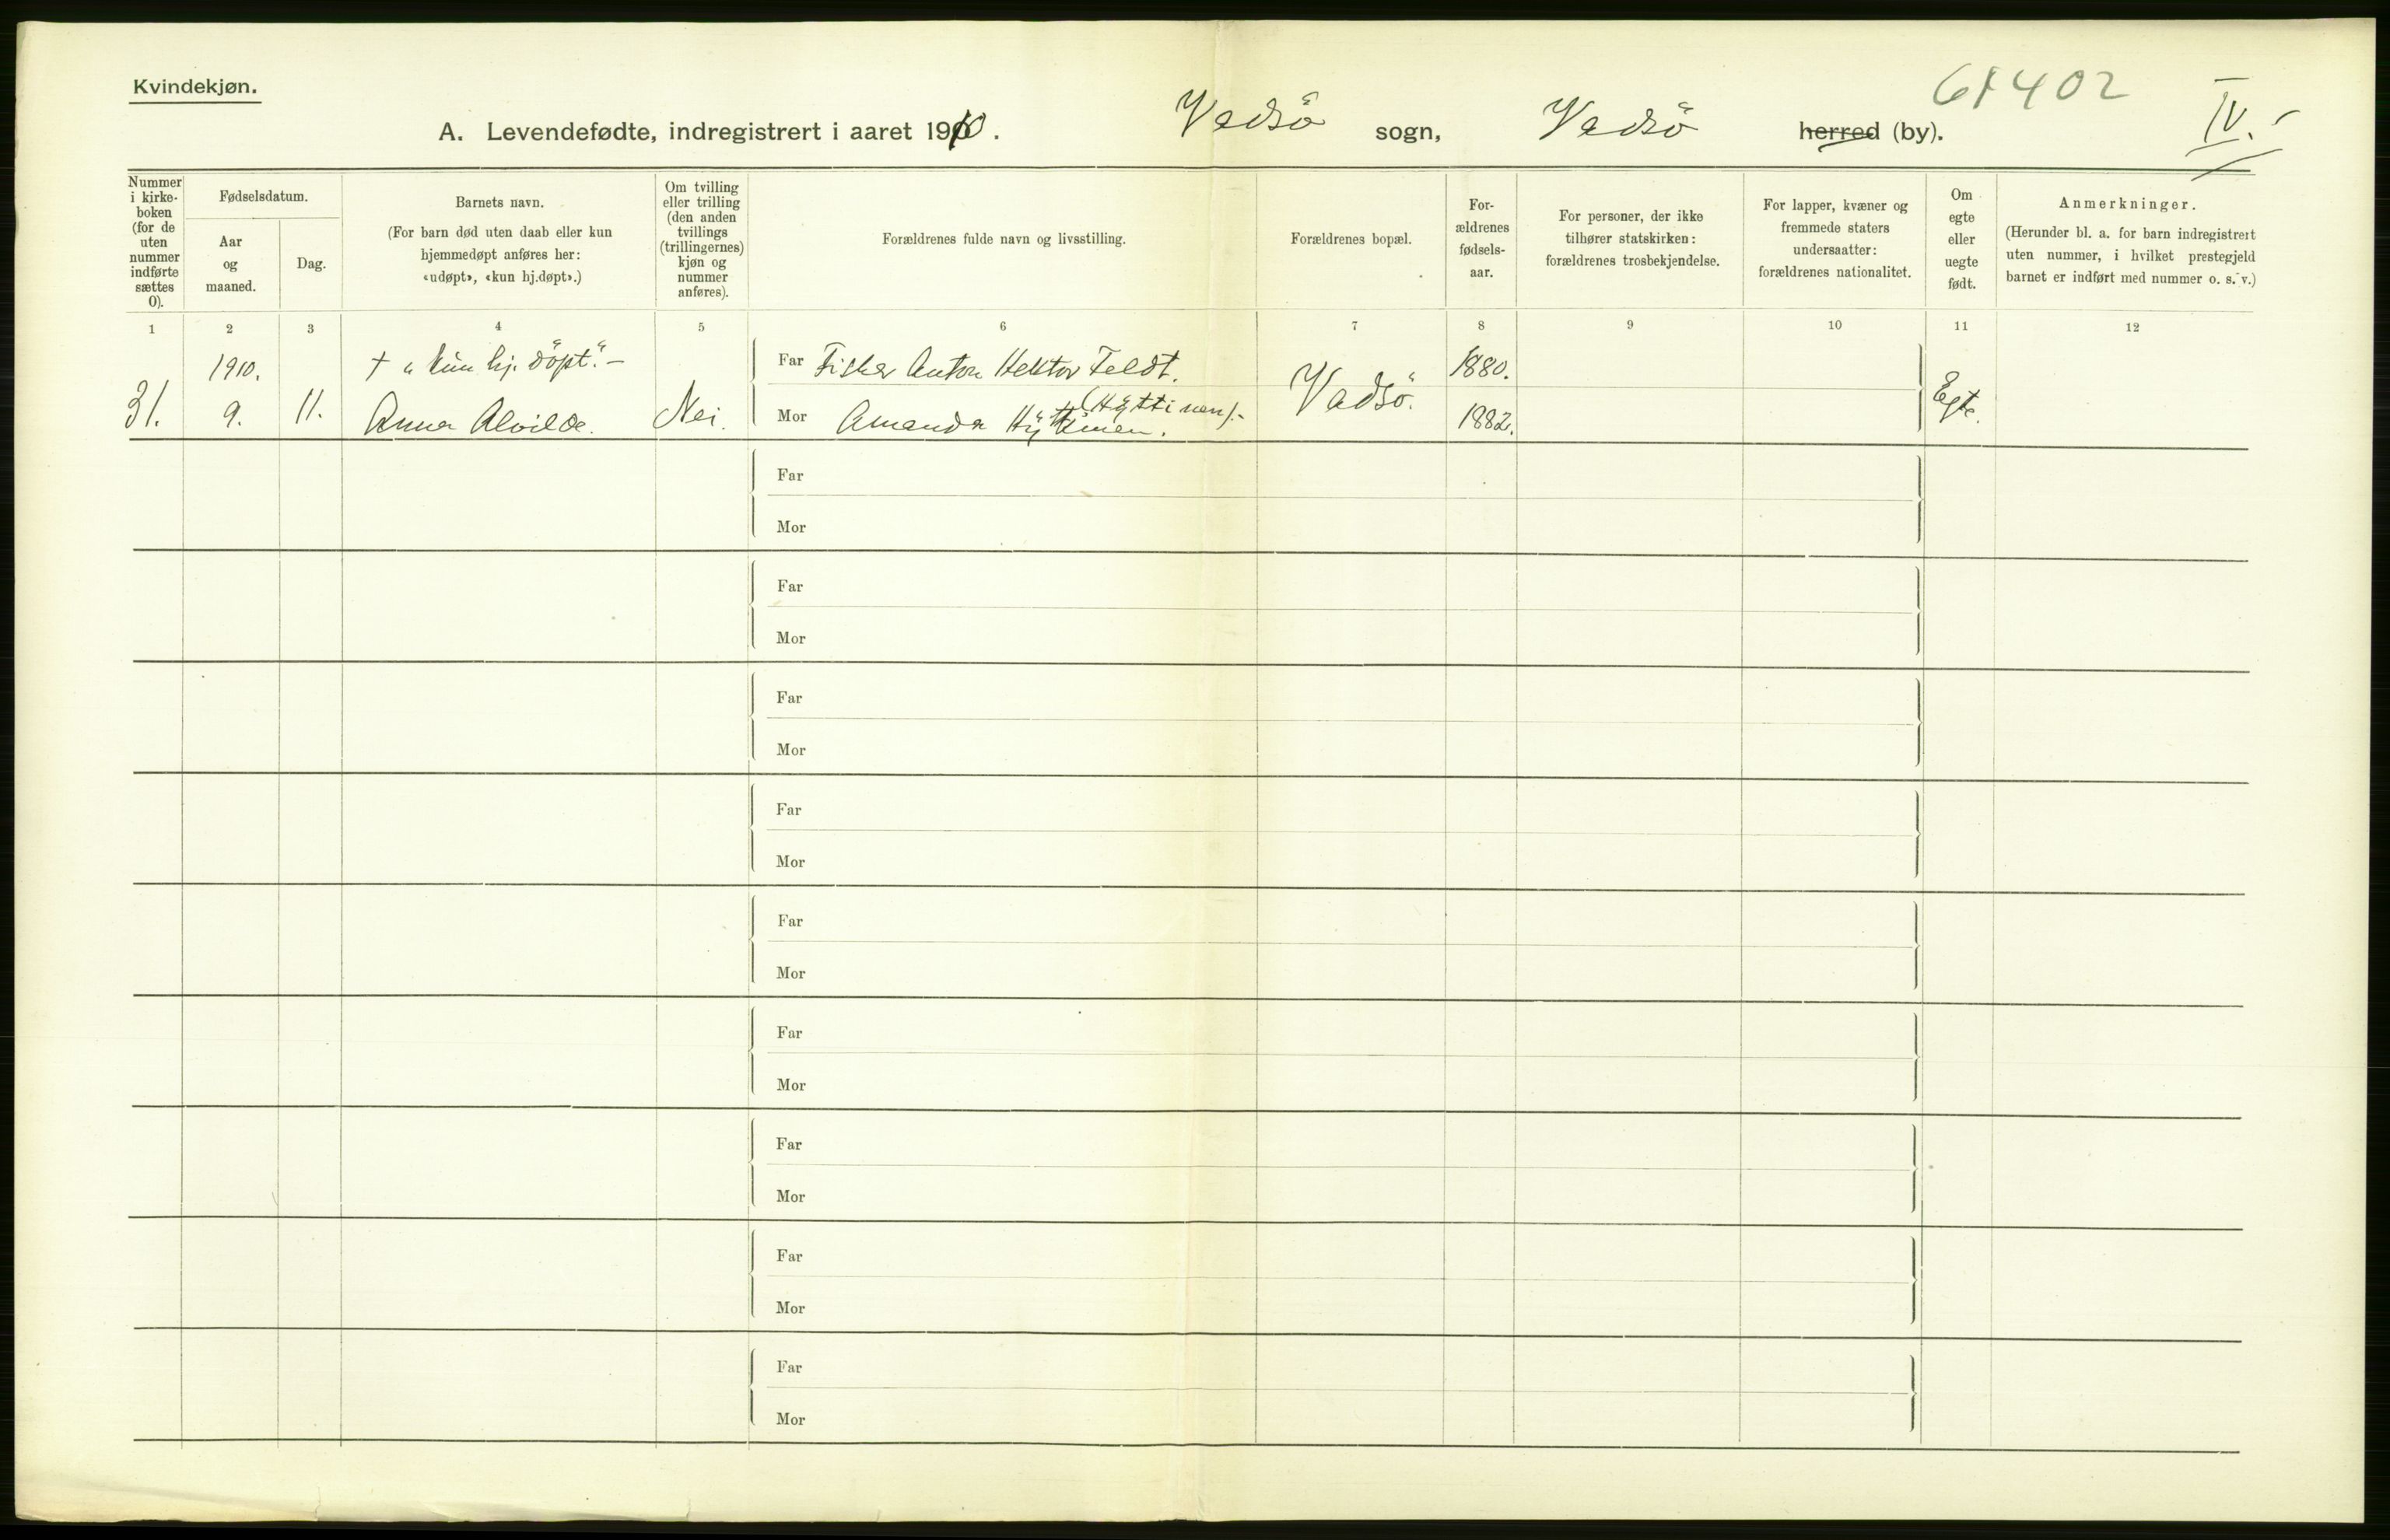 Kvindekjøn.
61402
IV.
A. Levendefødte, indregistrert i aaret 1910. Vadsö sogn, Vadsö herred (by).
Nummer i kirke-boken (for de uten nummer indførte sættes 0).
Fødselsdatum.
Aar og maaned.
Dag.
Barnets navn.
(For barn død uten daab eller kun hjemmedøpt anføres her: «udøpt», «kun hj.døpt».)
Om tvilling eller trilling (den anden tvillings (trillingernes) kjøn og nummer anføres).
Forældrenes fulde navn og livsstilling.
Forældrenes bopæl.
For-ældrenes fødsels-aar.
For personer, der ikke tilhører statskirken: forældrenes trosbekjendelse.
For lapper, kvæner og fremmede staters undersaatter: forældrenes nationalitet.
Om egte eller uegte født.
Anmerkninger.
(Herunder bl. a. for barn indregistrert uten nummer, i hvilket prestegjeld barnet er indført med nummer o. s. v.)
1 2 3 4 5 6 7 8 9 10 11 12
1910. † „kun hj. döpt." – Far Fisker Anton Hektor Feldt. 1880.
31. 9. 11. Anna Alvilde. Nei. Mor Amanda Hyttinen. (Hyttinen). Vadsö. 1882. Egte.
Far
Mor
Far
Mor
Far
Mor
Far
Mor
Far
Mor
Far
Mor
Far
Mor
Far
Mor
Far
Mor